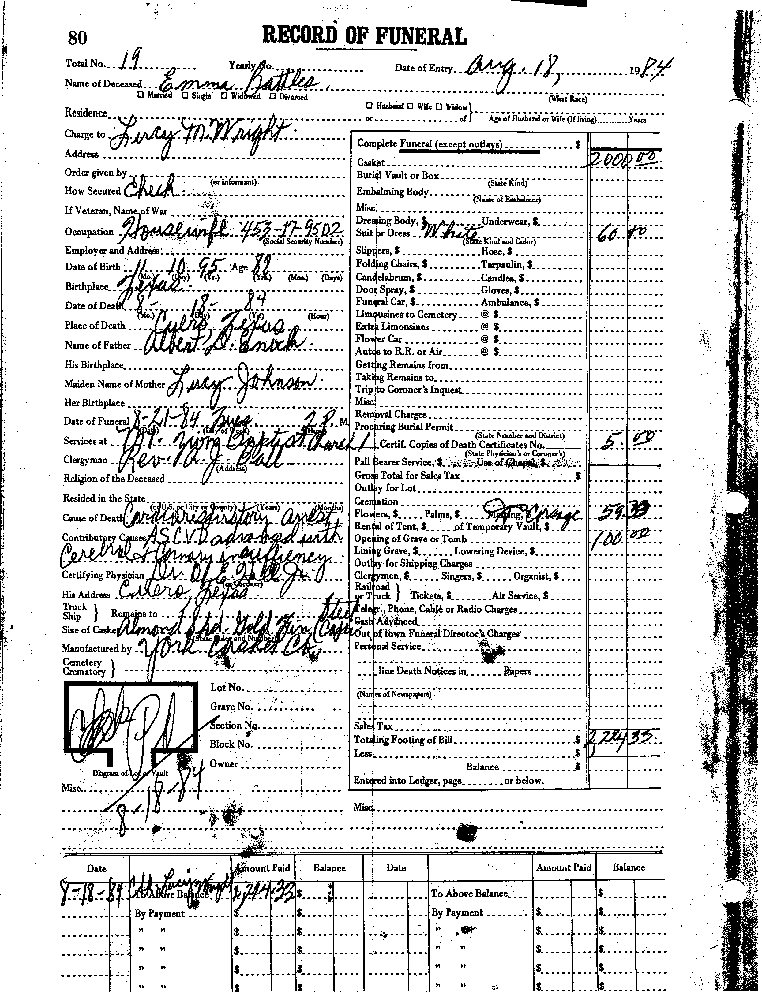 80
RECORD OF FUNERAL
Total No. 19 Yearly No. Date of Entry Aug. 18, 1984
Name of Deceased Emma Battles
☐ Married ☐ Single ☐ Widowed ☐ Divorced
(What Race)
Residence
☐ Husband ☐ Wife ☐ Widow
or of Age of Husband or Wife (if living) Years
Charge to M. Wright
Address
Order given by
(or informant)
How Secured Check
If Veteran, Name of War
Occupation Housewife 453-17-9502
(Social Security Number)
Employer and Address
Date of Birth 11 10 95 Age 89
(Mo.) (Day) (Yr.) (Yrs.) (Mos.) (Days)
Birthplace Texas
Date of Death 8- 18- 84
(Mo.) (Hour)
Place of Death Cuero, Texas
Name of Father Albert D. Enoch
His Birthplace
Maiden Name of Mother Lucy Johnson
Her Birthplace
Date of Funeral 8-21-84 Tues 2 P. M.
Services at Mt. Zion Baptist Church
Clergyman Rev. Ball
(Address)
Religion of the Deceased
Resided in the State
Cause of Death Cardiorespiratory arrest
Contributory Causes ASCVD advanced with
Cerebral & Coronary insufficiency
Certifying Physician Dr.
His Address Cuero, Texas
Truck
Ship } Remains to
Size of Casket Almond Gold
Manufactured by York Casket Co.
Cemetery
Crematory }
Lot No.
Grave No.
Section No.
Block No.
Owner
Diagram of Lot or Vault
Pd
8-18-84
Misc.
Complete Funeral (except outlays) $
Casket 2000.00
Burial Vault or Box
(State Kind)
Embalming Body
(Name of Embalmer)
Misc.
Dressing Body, $ Underwear, $
Suit or Dress White 60.00
(State Kind and Color)
Slippers, $ Hose, $
Folding Chairs, $ Tarpaulin, $
Candelabrum, $ Candles, $
Door Spray, $ Gloves, $
Funeral Car, $ Ambulance, $
Limousines to Cemetery @ $
Extra Limousines @ $
Flower Car @ $
Autos to R.R. or Air @ $
Getting Remains from
Taking Remains to
Trip to Coroner's Inquest
Misc.
Removal Charges
Procuring Burial Permit
(State Number and District)
1 Certif. Copies of Death Certificates No. 5.00
(State Physician's or Coroner's)
Pall Bearer Service, $ Use of Chapel, $
Gross Total for Sales Tax $
Outlay for Lot
Cremation
Flowers, $ Palms, $ Corsage 59.33
Rental of Tent, $ of Temporary Vault, $
Opening of Grave or Tomb 100.00
Lining Grave, $ Lowering Device, $
Outlay for Shipping Charges
Clergymen, $ Singers, $ Organist, $
Railroad
or Truck } Tickets, $ Air Service, $
Telegr., Phone, Cable or Radio Charges
Cash Advanced
Out of Town Funeral Director's Charges
Personal Service
line Death Notices in Papers
(Names of Newspapers)
Sales Tax
Totaling Footing of Bill $
Less
Balance $
Entered into Ledger, page or below.
Misc.
Date Amount Paid Balance Date Amount Paid Balance
8-18-84 To Above Balance $ To Above Balance $
By Payment $ By Payment $ $
" " $ " " $ $
" " $ " " $ $
" " $ " " $ $
" " $ " " $ $